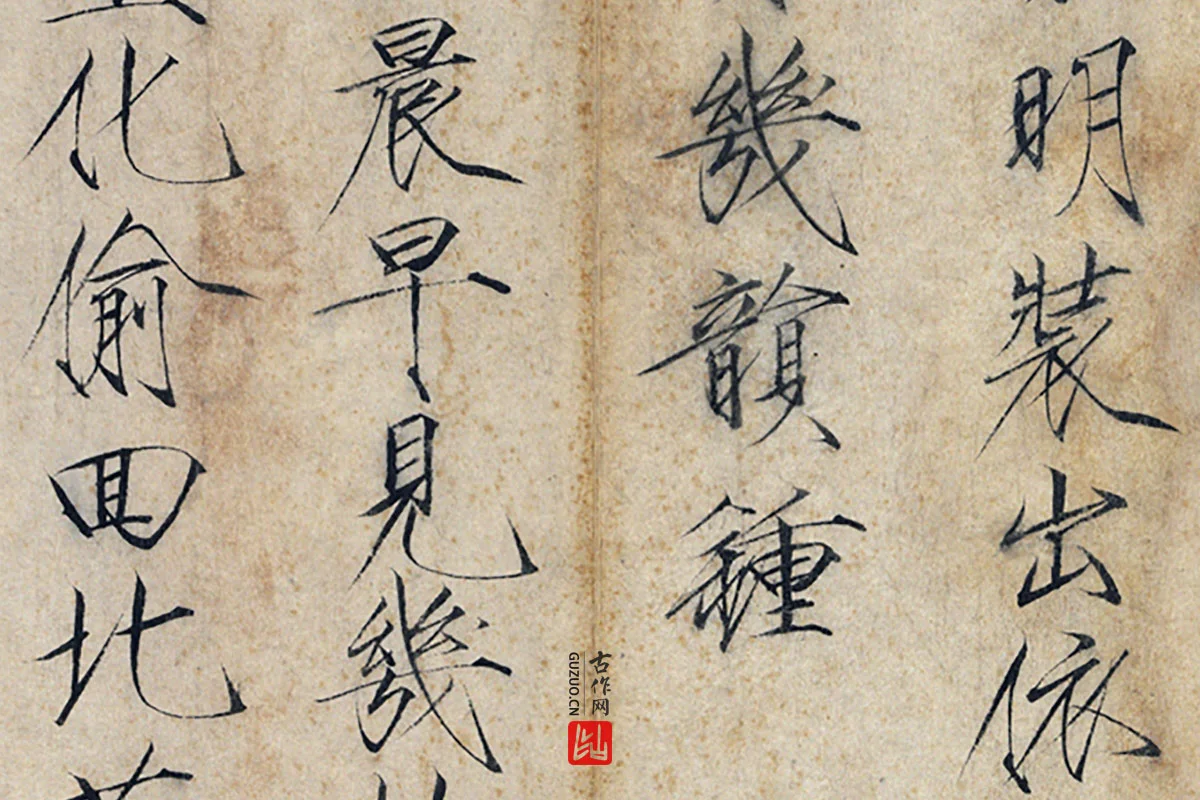 明裝出依
幾韻鍾
晨早見幾
化偷回比
古作网
GUZUO.CN